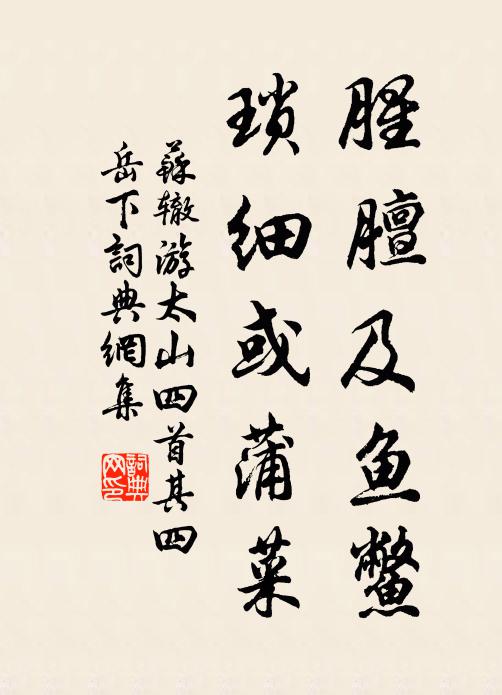 腥膻及鱼鳖
琐细或蒲菜
蘇辙游太山四首其四
岳下詞典網集
詞典
网印